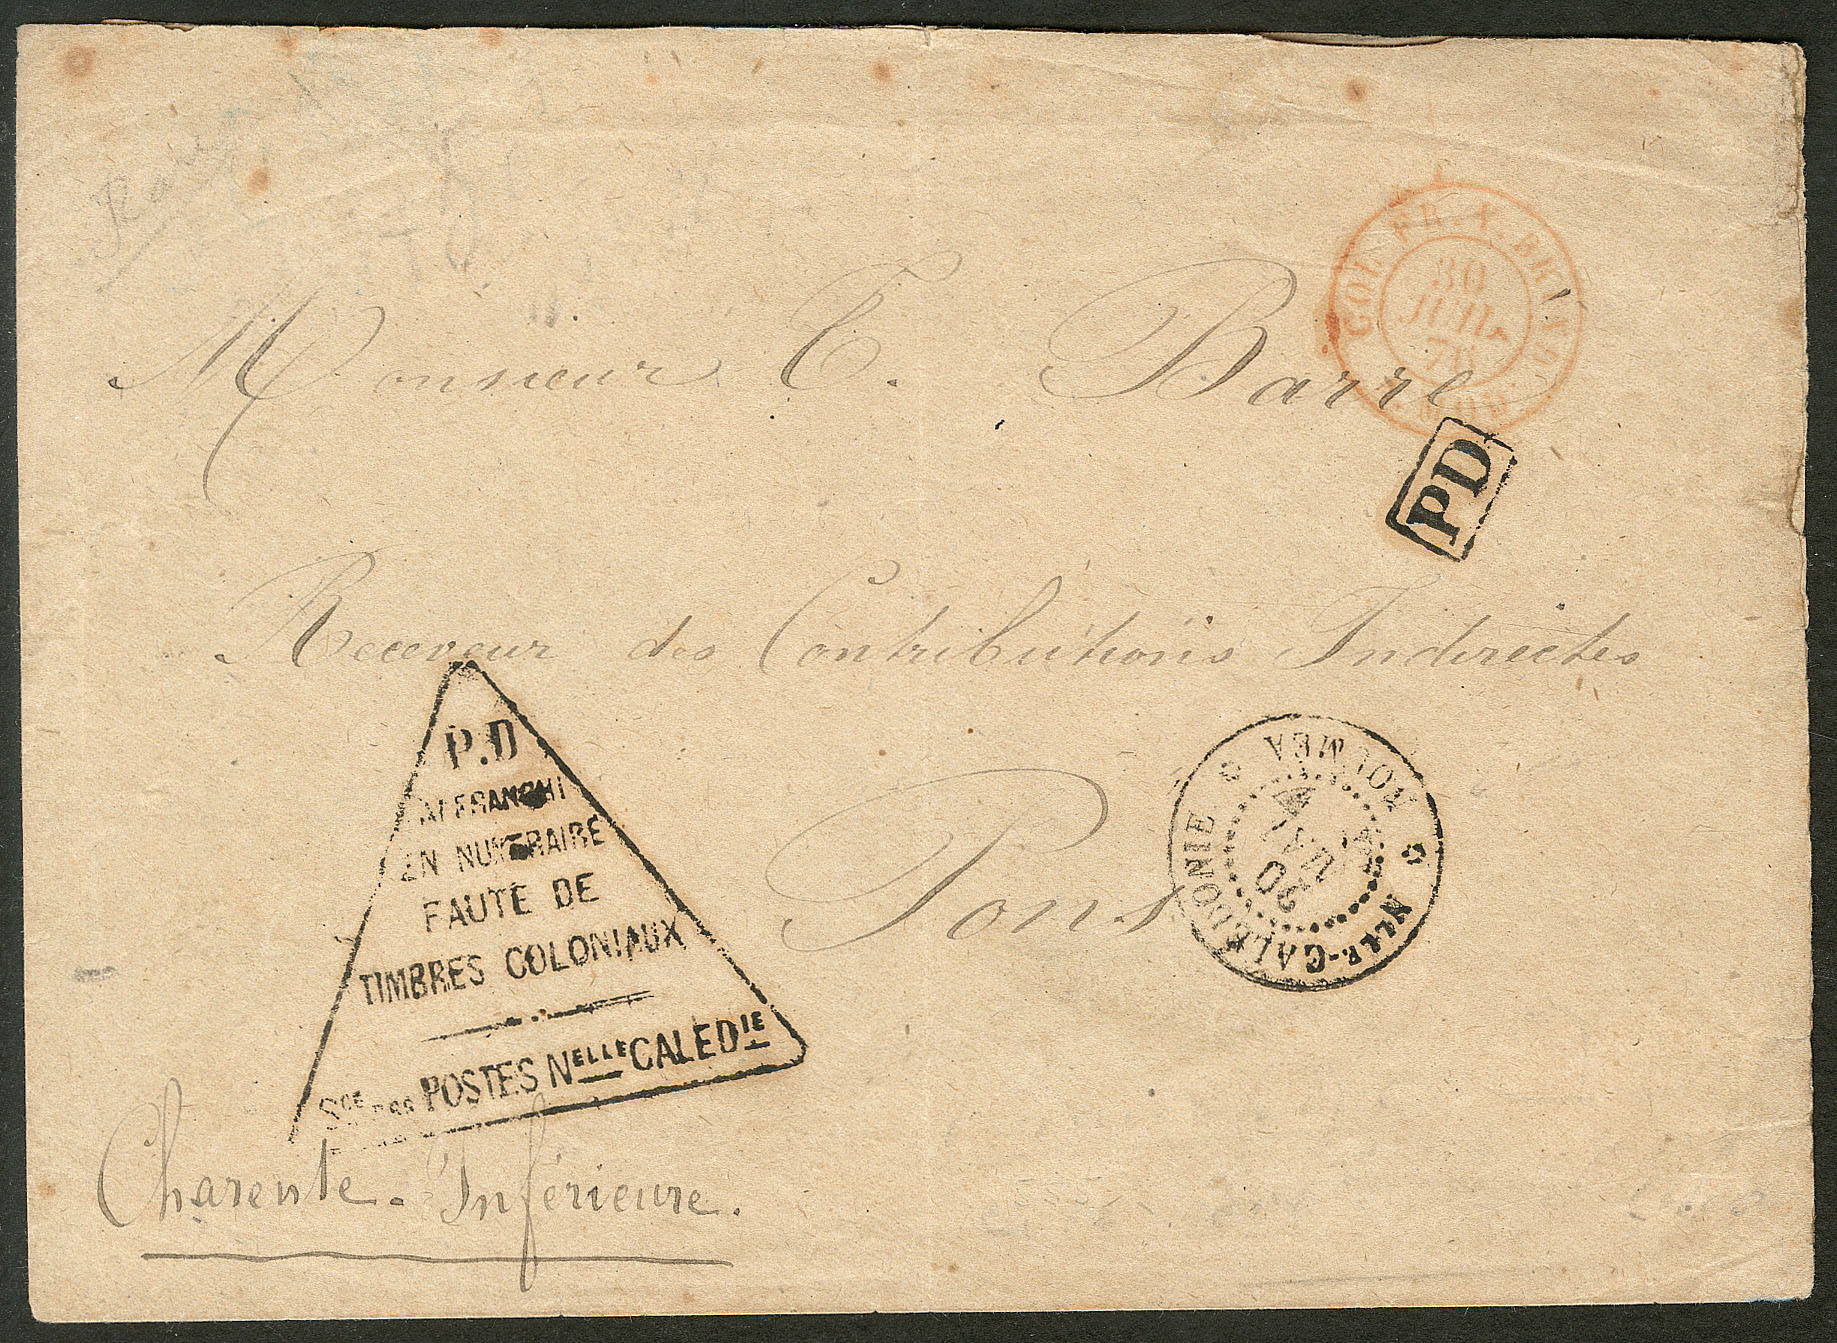 COL. FR. V. BRINDISI
30
JUIL.
78
MOD.
Monsieur E. Barre
PD
Receveur des Contributions Indirectes
P.D
AFFRANCHI
EN NUMERAIRE
FAUTE DE
TIMBRES COLONIAUX
Sce DES POSTES Nelle CALEDie
Pons
NOUMEA
20
MAI
Nlle-CALEDONIE
Charente-Inférieure.